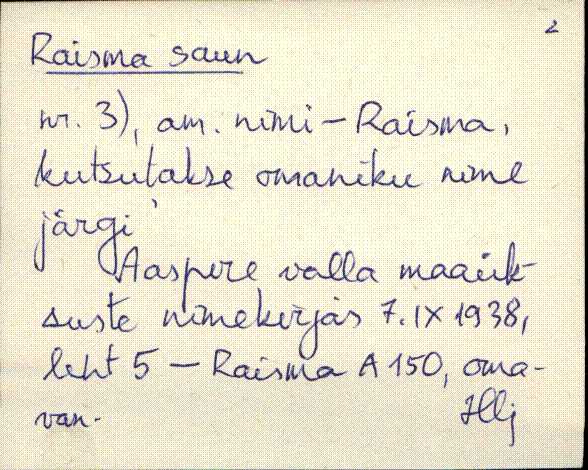 2
Raisma saun
nr. 3), am. nimi – Raisma,
kutsutakse omaniku nime
järgi
Aaspere valla maaük-
suste nimekirjas 7.IX 1938,
leht 5 – Raisma A 150, oma-
van.